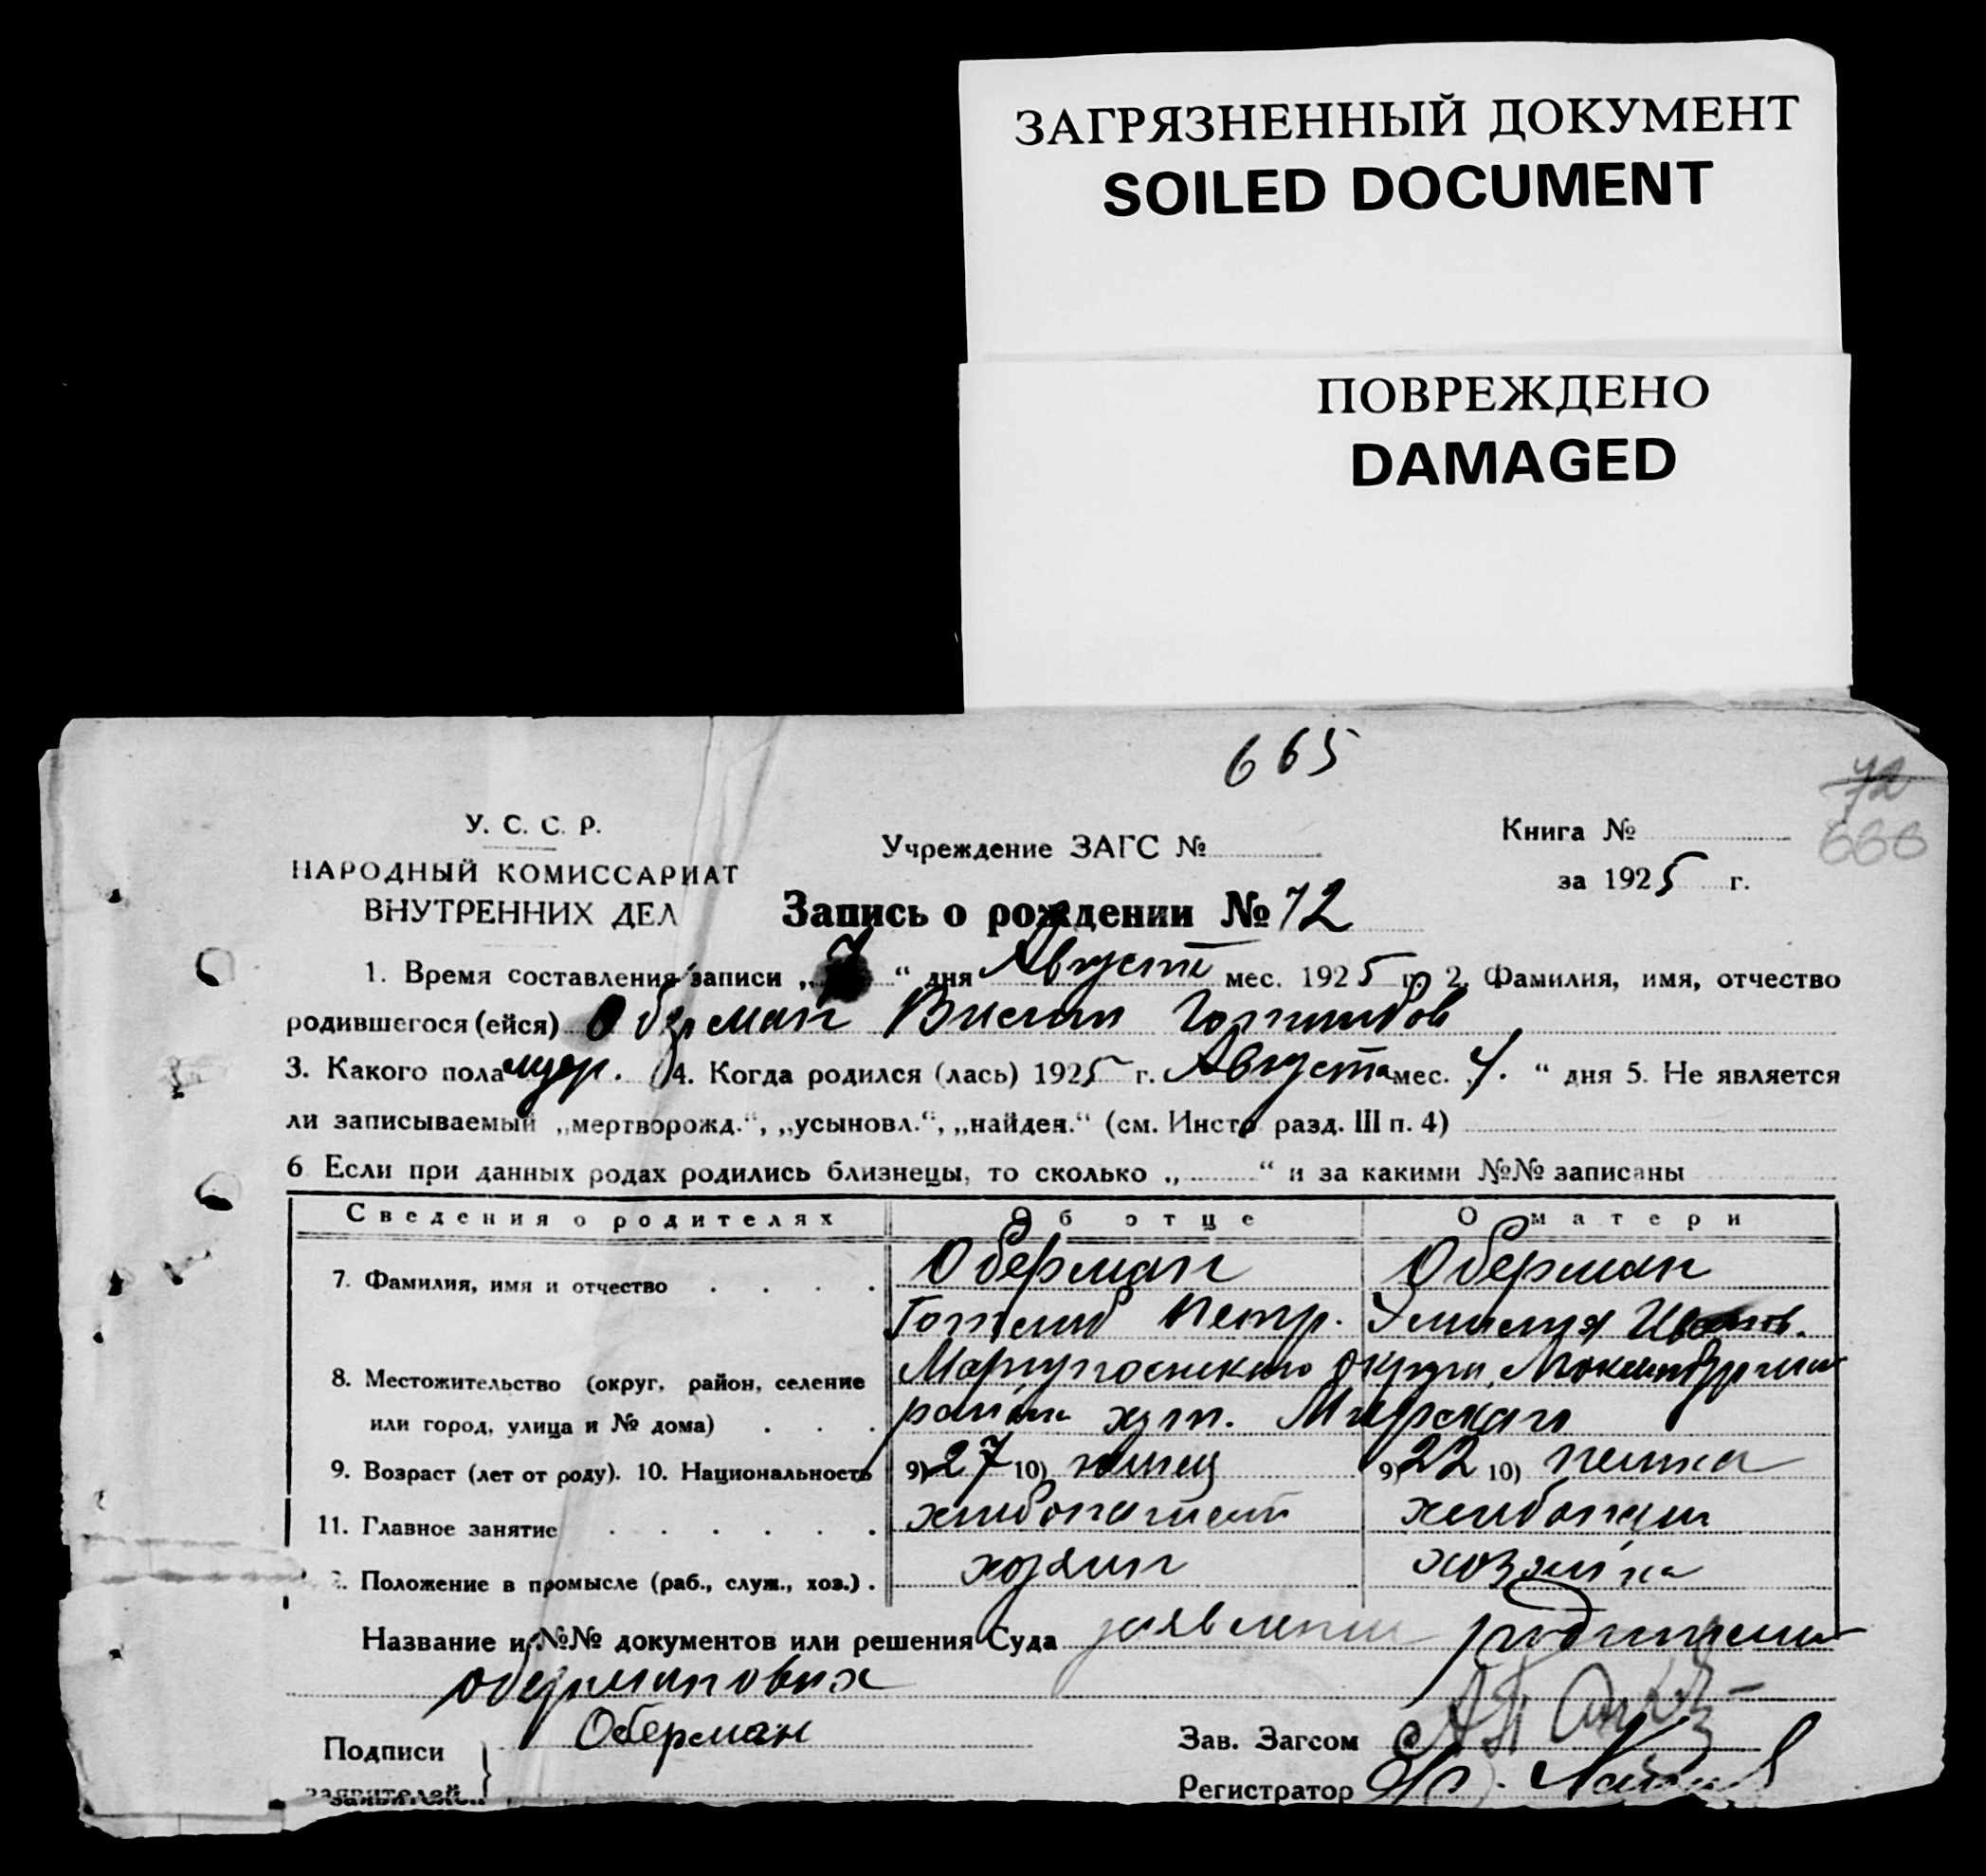 ЗАГРЯЗНЕННЫЙ ДОКУМЕНТ
SOILED DOCUMENT
ПОВРЕЖДЕНО
DAMAGED
665
72
666
У. С. С. Р.
НАРОДНЫЙ КОМИССАРИАТ
ВНУТРЕННИХ ДЕЛ
Учреждение ЗАГС №
Книга №
за 1925 г.
Запись о рождении № 72
1. Время составления записи „7“ дня Август мес. 1925 г. 2. Фамилия, имя, отчество
родившегося (ейся) Оберман Вилли Готлибов
3. Какого пола муж. 4. Когда родился (лась) 1925 г. Августа мес. „4.“ дня 5. Не является
ли записываемый „мертворожд.“, „усыновл.“, „найден.“ (см. Инстр. разд. III п. 4)
6 Если при данных родах родились близнецы, то сколько „ “ и за какими №№ записаны
Сведения о родителях Об отце О матери
7. Фамилия, имя и отчество Оберман Оберман
Готлиб Петр. Эмилия Иванов.
8. Местожительство (округ, район, селение Мариупольского округа,
или город, улица и № дома) района хут.
9. Возраст (лет от роду). 10. Национальность 9) 27 10) немец 9) 22 10) немка
11. Главное занятие хлебопашест хлебопаш
Положение в промысле (раб., служ., хоз.) хозяин хозяйка
Название и №№ документов или решения Суда заявление родителей
Обермановых
Подписи Оберман
заявителей
Зав. Загсом
Регистратор